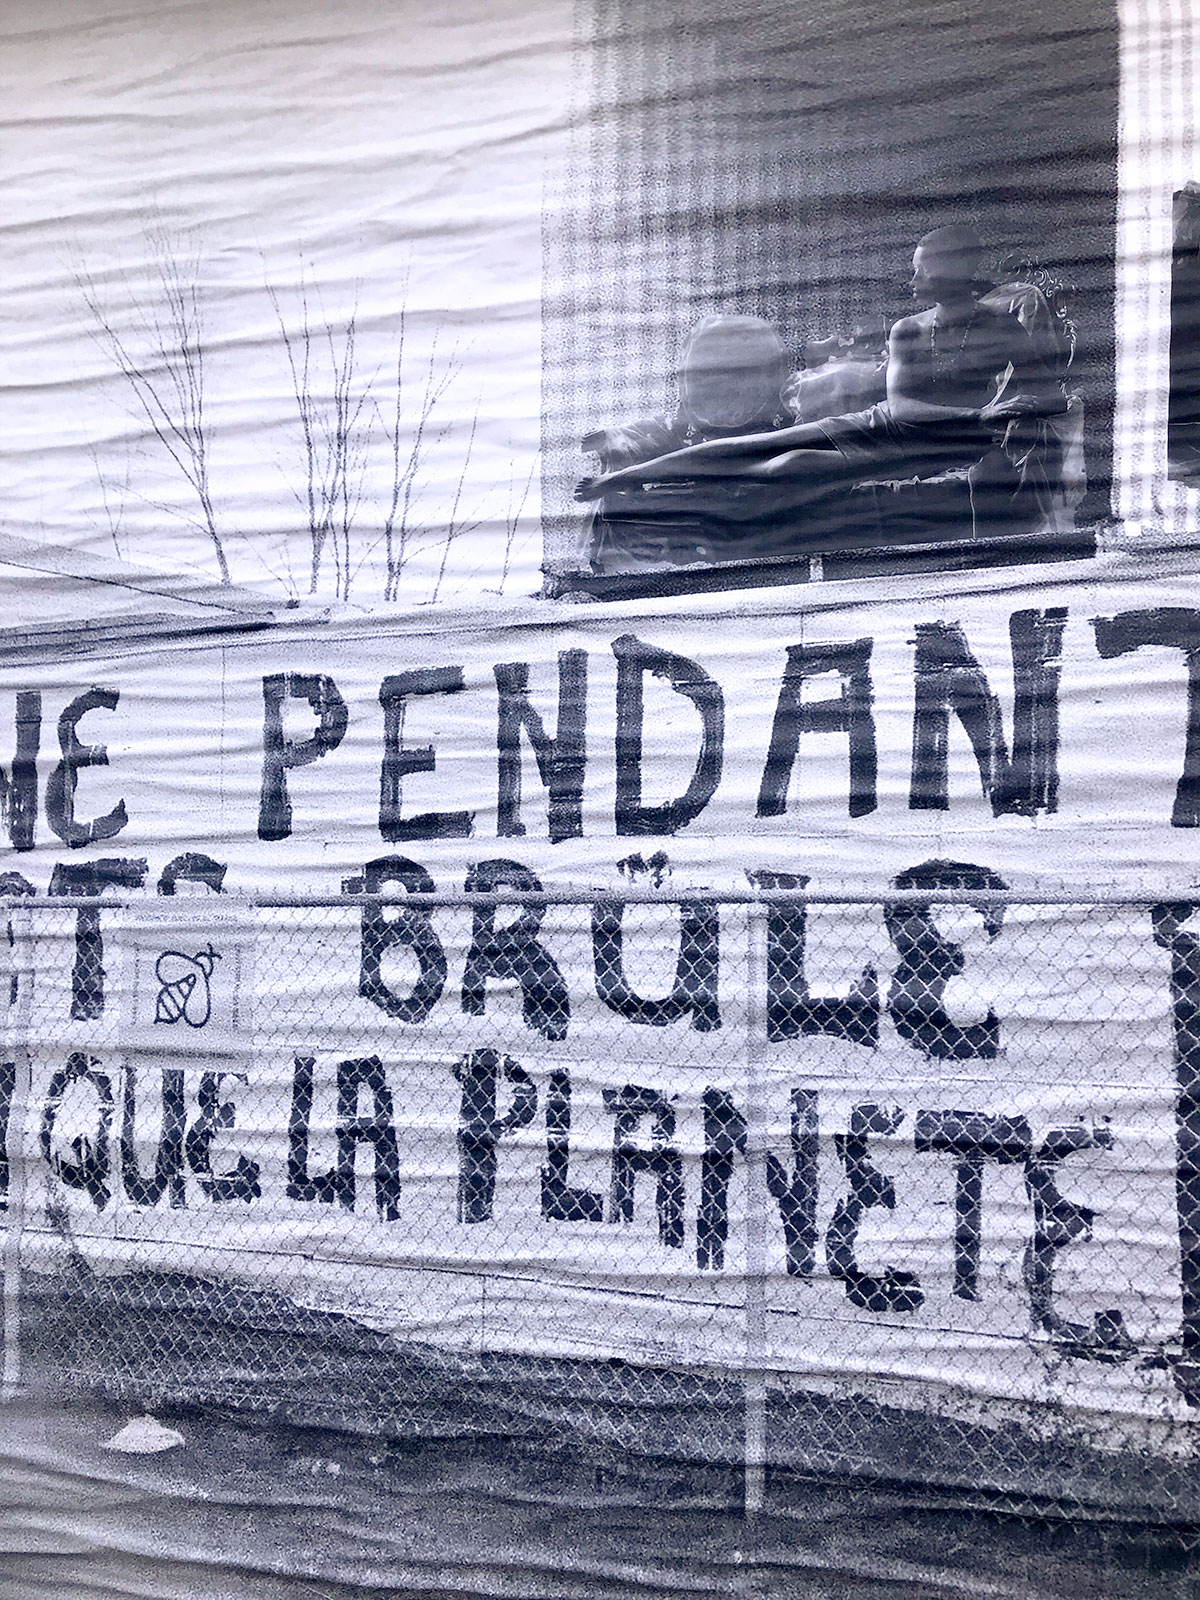 PENDANT
BRÜLE
QUE LA PLANETE